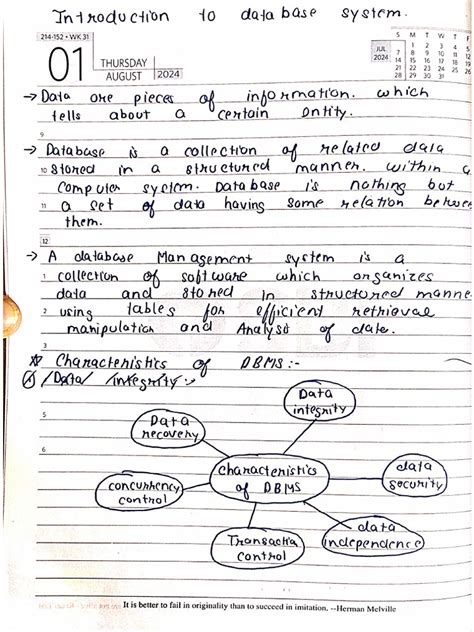 Introduction to database system.
214-152 • WK 31
01
THURSDAY
AUGUST 2024
JUL 2024
S M T W T F
1 2 3 4 5
7 8 9 10 11 12
14 15 16 17 18 19
21 22 23 24 25 26
28 29 30 31
→ Data are pieces of information. which
tells about a certain Entity.
9
→ Database is a collection of related data
10 stored in a structured manner. within a
computer system. Database is nothing but
11 a set of data having some relation between
them.
12
→ A database Management system is a
1 collection of software which organizes
data and stored in structured manne
2 using tables for efficient retrieval
manipulation and Analysis of data.
3
Characteristics of DBMS:-
Data integrity :-
5
6
Data integrity
Data recovery
characteristics of DBMS
data security
concurrency control
data independence
Transactio control
It is better to fail in originality than to succeed in imitation. --Herman Melville